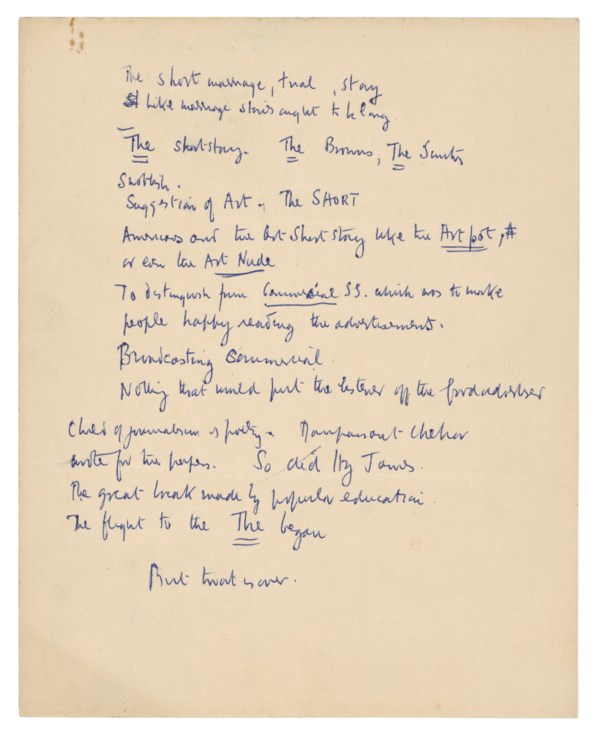 The short marriage, trial, story
Like marriage stories ought to be long
The short story. The Browns, The Smiths
Snobbish.
Suggestion of Art. The SHORT
Americans and the Art Short Story like the Art pot,
or even the Art Nude
To distinguish from Commercial S.S. which was to make
people happy reading the advertisements.
Broadcasting Commercial.
Nothing that would put the listener off the food advertiser
Child of journalism & poetry. Maupassant Chekov
wrote for the papers. So did Hy James.
The great break made by popular education.
The flight to the The began
But that is over.